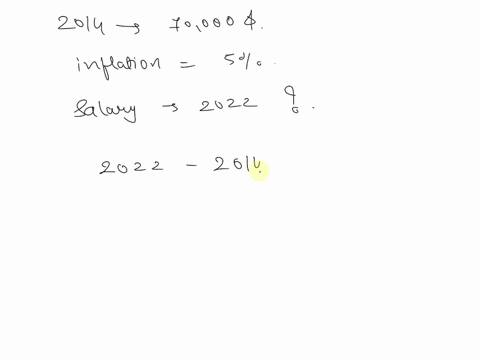 2014 → 70,000 $.
inflation = 5%.
Salary → 2022 ?
2022 - 2014